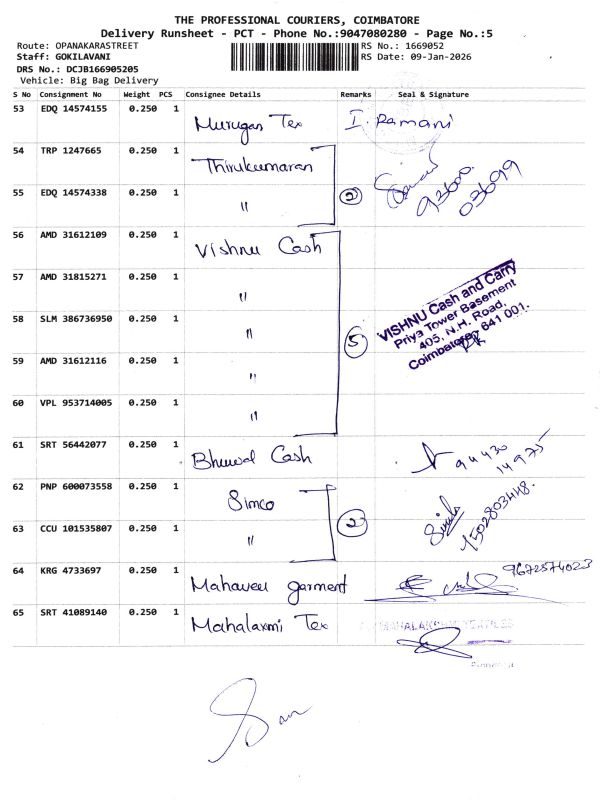 THE PROFESSIONAL COURIERS, COIMBATORE
Delivery Runsheet - PCT - Phone No.:9047080280 - Page No.:5
Route: OPANAKARASTREET
RS No.: 1669052
Staff: GOKILAVANI
RS Date: 09-Jan-2026
DRS No.: DCJB166905205
Vehicle: Big Bag Delivery
S No Consignment No Weight PCS Consignee Details Remarks Seal & Signature
53 EDQ 14574155 0.250 1 Murugan Tex I. Ramani
54 TRP 1247665 0.250 1 Thirukumaran
2
93600
03699
55 EDQ 14574338 0.250 1 "
56 AMD 31612109 0.250 1 Vishnu Cash
57 AMD 31815271 0.250 1 "
58 SLM 386736950 0.250 1 "
5
VISHNU Cash and Carry
Priya Tower Basement
405, N.H. Road,
Coimbatore - 641 001.
59 AMD 31612116 0.250 1 "
60 VPL 953714005 0.250 1 "
61 SRT 56442077 0.250 1 Bhuwal Cash
94430
14975
62 PNP 600073558 0.250 1 Simco
2
7502803448.
63 CCU 101535807 0.250 1 "
64 KRG 4733697 0.250 1 Mahaveer garment 9672574023
65 SRT 41089140 0.250 1 Mahalaxmi Tex